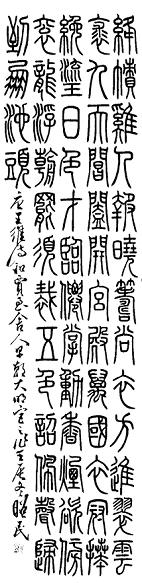 絳幘雞人報曉籌尚衣方進翠雲
裘九天閶闔開宮殿萬國衣冠拜
冕旒日色才臨仙掌動香煙欲傍
袞龍浮朝罷須裁五色詔佩聲歸
到鳳池頭 唐王維詩和賈至舍人早朝大明宮之作 昭民